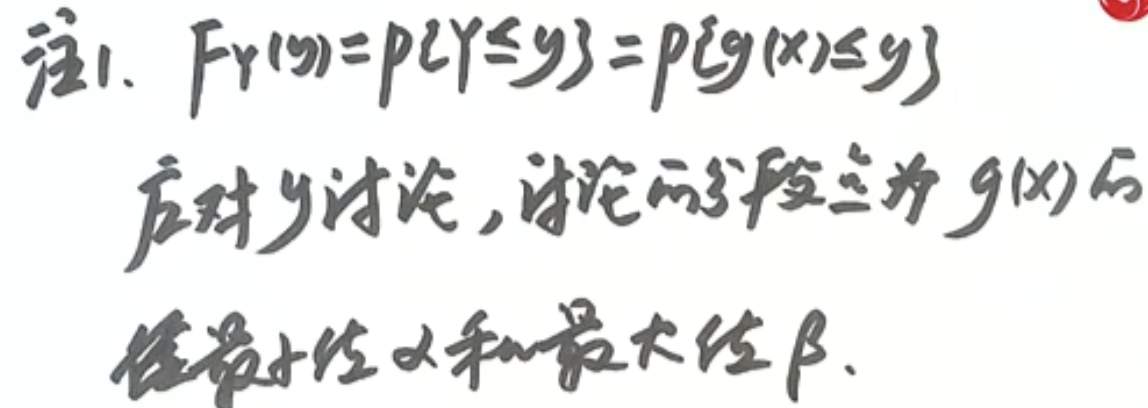 注1. F_Y(y)=P{Y≤y}=P{g(X)≤y}
后对y讨论,讨论的分段点为g(x)的
最小值α和最大值β.